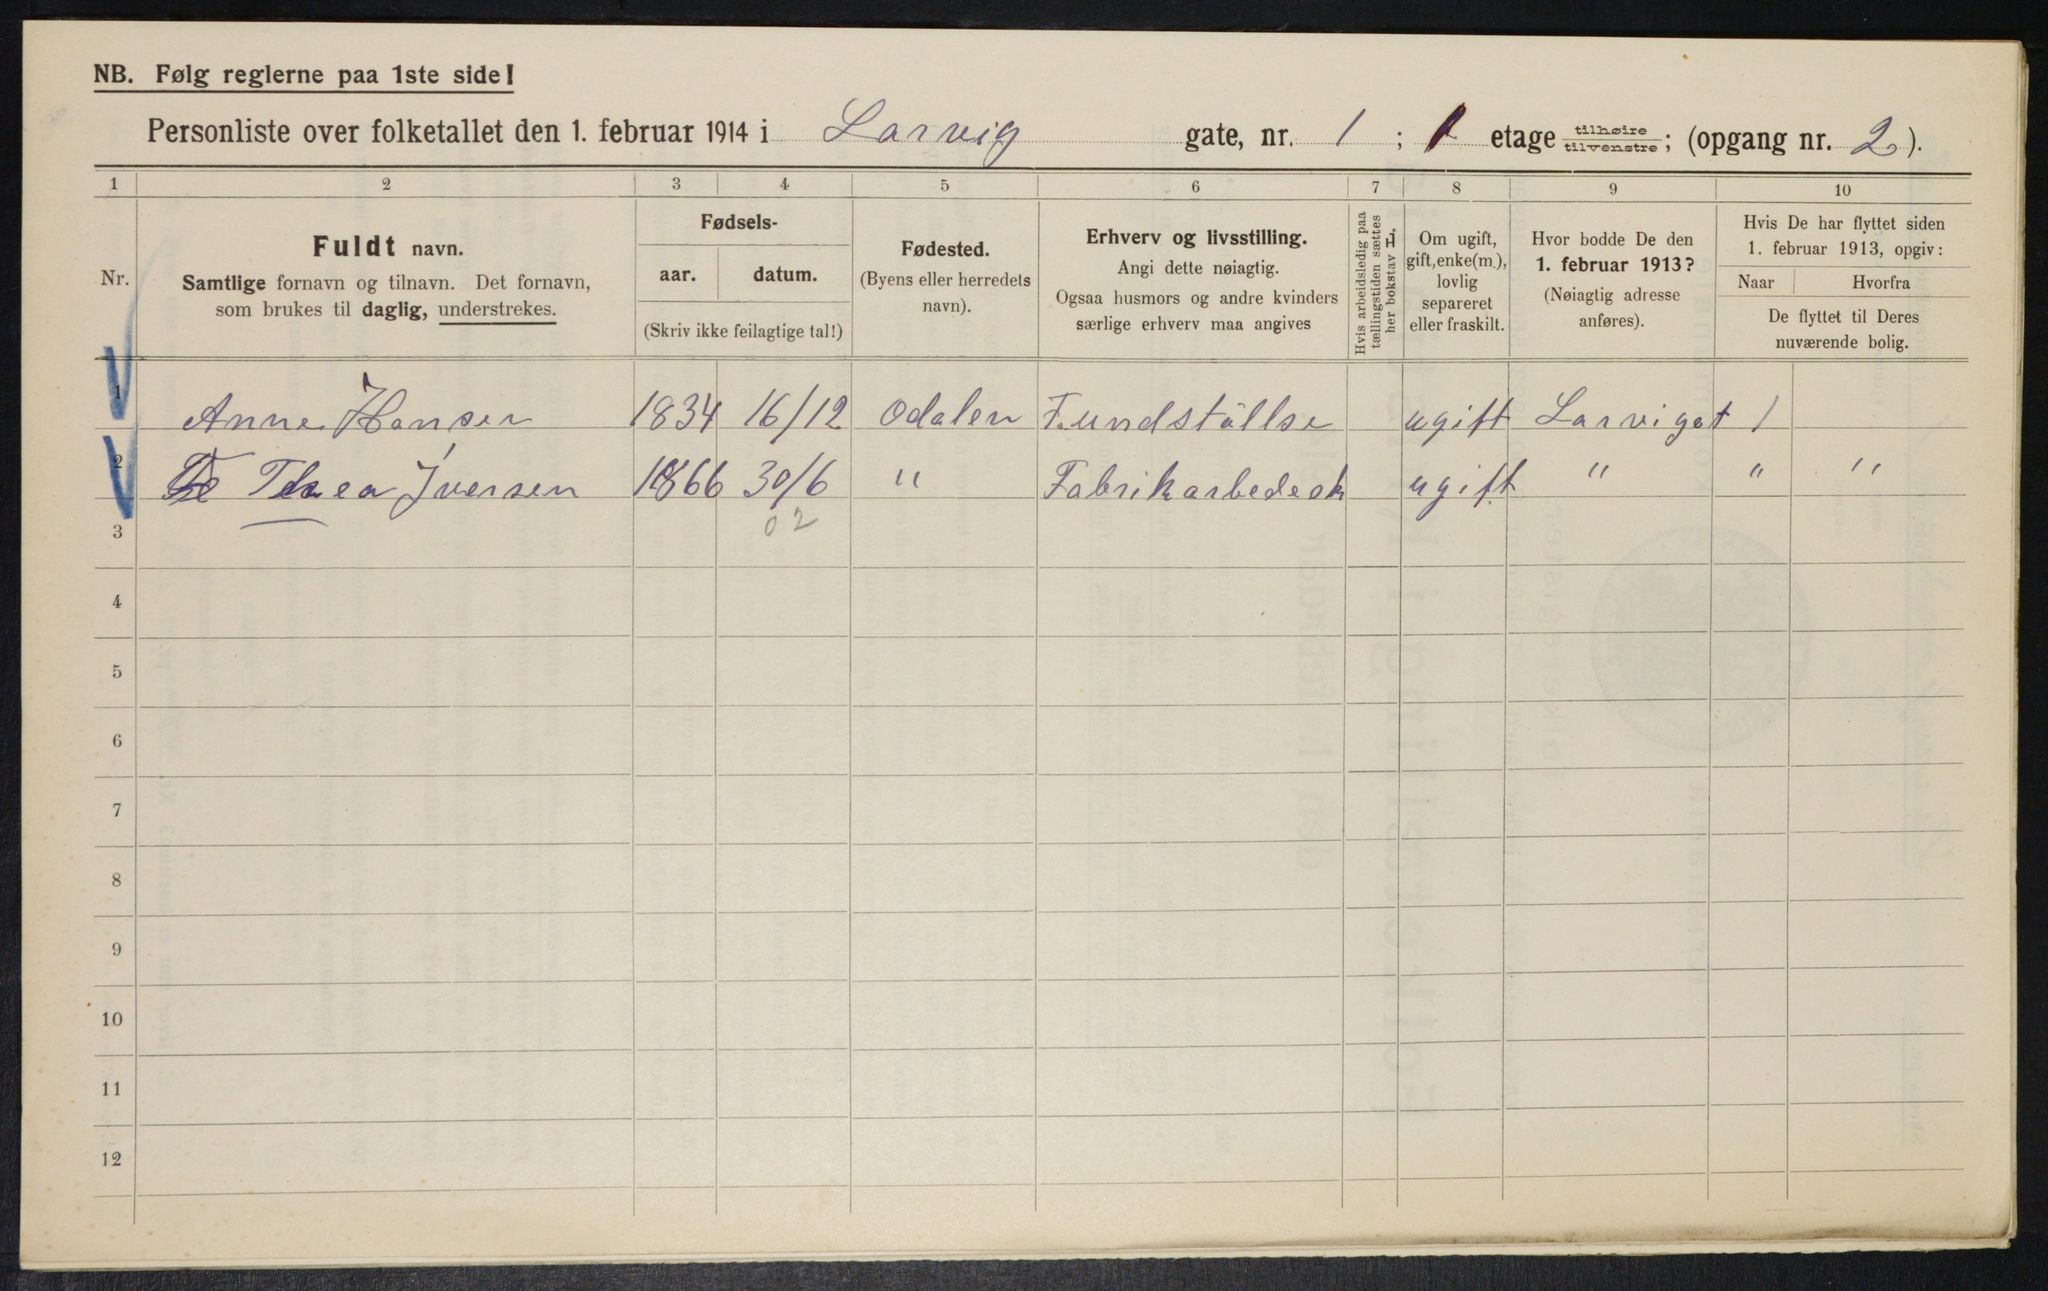 NB. Følg reglerne paa 1ste side!
Personliste over folketallet den 1. februar 1914 i Larvig gate, nr. 1 ; etage tilhøire tilvenstre; (opgang nr. 2).
1 2 3 4 5 6 7 8 9 10
Nr.
Fuldt navn.
Samtlige fornavn og tilnavn. Det fornavn,
som brukes til daglig, understrekes.
Fødsels-
aar. datum.
(Skriv ikke feilagtige tal!)
Fødested.
(Byens eller herredets
navn).
Erhverv og livsstilling.
Angi dette nøiagtig.
Ogsaa husmors og andre kvinders
særlige erhverv maa angives
Hvis arbeidsledig paa
tællingstiden sættes
her bokstav L,
Om ugift,
gift, enke(m.),
lovlig
separeret
eller fraskilt.
Hvor bodde De den
1. februar 1913?
(Nøiagtig adresse
anføres).
Hvis De har flyttet siden
1. februar 1913, opgiv:
Naar Hvorfra
De flyttet til Deres
nuværende bolig.
1 Anne Hansen 1834 16/12 Odalen Fundställse ugift Larvigat 1
2 Thea Iversen 1866 30/6 " Fabrikarbedeok ugift " " "
02
3
4
5
6
7
8
9
10
11
12